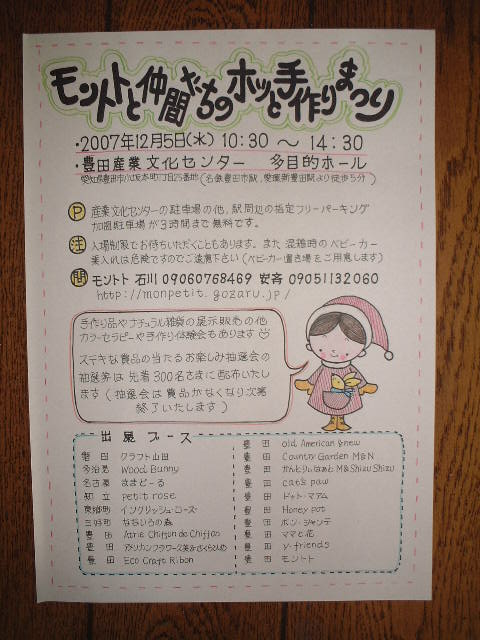 モントトと仲間たちのホッと手作りまつり
・2007年12月5日(水) 10:30 〜 14:30
・豊田産業文化センター 多目的ホール
愛知県豊田市小坂本町1丁目25番地(名鉄豊田市駅,愛環新豊田駅より徒歩5分)
P 産業文化センターの駐車場の他,駅周辺の指定フリーパーキング
加盟駐車場が3時間まで無料です。
注 入場制限でお待ちいただくこともあります。また 混雑時のベビーカー
乗入れは危険ですのでご遠慮下さい(ベビーカー置き場をご用意します)
問 モントト 石川 09060768469 安斉 09051132060
http://monpetit.gozaru.jp/
手作り品やナチュラル雑貨の展示販売の他
カラーセラピーや手作り体験会もあります
ステキな賞品の当たるお楽しみ抽選会の
抽選券は 先着300名さまに配布いたし
ます(抽選会は賞品がなくなり次第
終了いたします)
出展ブース
豊田 クラフト山田
多治見 Wood Bunny
名古屋 ままどーる
知立 petit rose
東郷町 イングリッシュ・コーズ
三好町 なないろの森
豊田 Atrie Chiffon de Chiffon
豊田
豊田 Eco Craft Ribon
豊田 old American & new
豊田 Country Garden M&N
豊田 かんとりぃはぁと M&Shizu Shizu
豊田 cat's paw
豊田 ドット・マアム
豊田 Honey pot
豊田 ボン・シャンテ
豊田 ママと花
豊田 y-friends
豊田 モントト